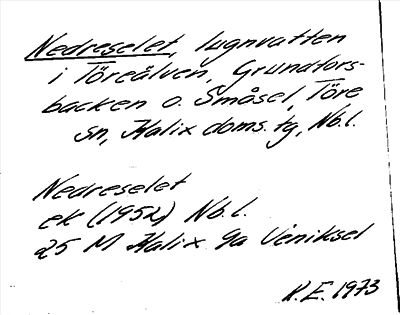 Nedreselet, lugnvatten
i Töreälven, Grundfors-
backen o. Småsel, Töre
sn, Kalix doms. tg, Nb. l.
Nedreselet
ek (1952) Nb. l.
25 M Kalix 9a Veniksel
K. E. 1973